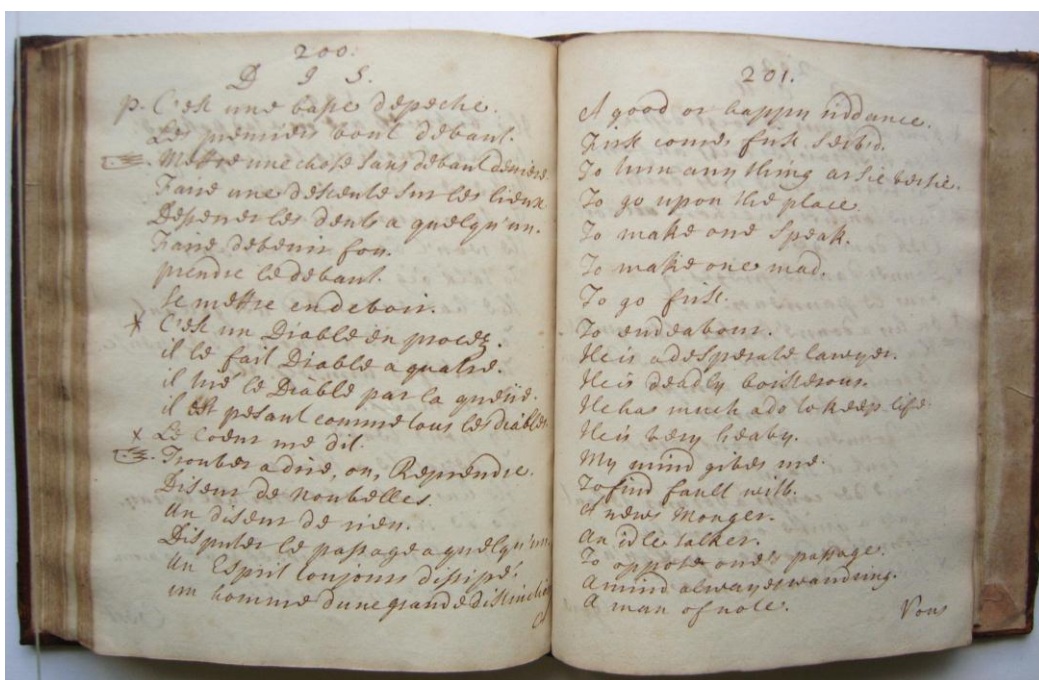 200.
D I S.
p. C'est une basse depeche.
Les premiers vont devant.
Mettre une chose sans devant derriere
Faire une descente sur les lieux
Desserrer les dents a quelqu'un.
Faire devenir fou.
prendre le devant.
se mettre en devoir.
x C'est un Diable en procez.
il le fait Diable a quatre.
il tire le Diable par la queüe.
il est pesant comme tous les diables
x Le Coeur me dit.
Trouver a dire, ou, Reprendre.
Diseur de Nouvelles.
un diseur de rien.
Disputer le passage a quelqu'un
un Esprit toujours dissipé.
un homme d'une grande distinction
201.
A good or happy riddance.
First comes first serv'd.
To turn any thing arsie versie.
To go upon the place.
To make one speak.
To make one mad.
To go first.
To endeavour.
He is a desperate lawyer.
He is deadly boisterous.
He has much ado to keep life.
He is very heavy.
My mind gives me.
To find fault with.
A news monger.
An idle talker.
To oppose one's passage.
A mind always wandring.
A man of note.
Vous